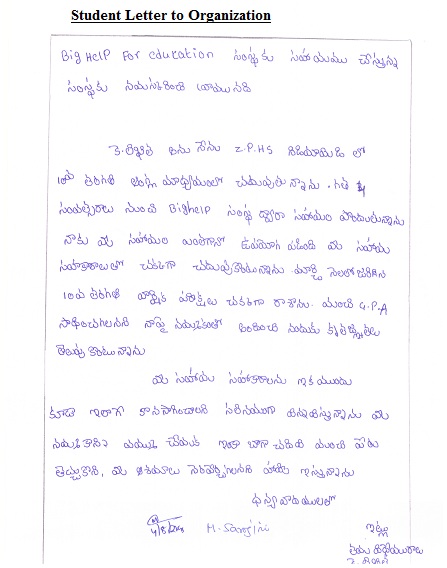 Student Letter to Organization
Big Help For education సంస్థకు సహాయము చేస్తున్న
సంస్థకు నమస్కరించి వ్రాయునది
నేను Z.P.H.S లో
10వ తరగతి ఆంగ్ల మాధ్యమంలో చదువుతున్నాను. గత 4
సంవత్సరాల నుంచి Bighelp సంస్థ ద్వారా సహాయం పొందుతున్నాను
నాకు మీ సహాయం ఎంతగానో ఉపయోగ పడింది మీ సహాయ
సహకారాలతో చక్కగా చదువుకుంటున్నాను. మార్చి నెలలో జరిగిన
10వ తరగతి వార్షిక పరీక్షలు చక్కగా రాశాను. మంచి G.P.A
సాధించగలనని నాపై నమ్మకంతో అందించి నందుకు కృతజ్ఞతలు
తెలుపు కొంటున్నాను
మీ సహాయ సహకారాలను ఇక ముందు
కూడా ఇలాగే కొనసాగించాలని సవినయంగా విన్నవిస్తున్నాను మీ
నమ్మకాన్ని వమ్ము చేయక ఇంకా బాగా చదివి మంచి పేరు
తెచ్చుకొని, మీ ఆశయాలు నెరవేర్చగలనని హామీ ఇస్తున్నాను
ధన్యవాదములతో
ఇట్లు
తమ విధేయురాలు